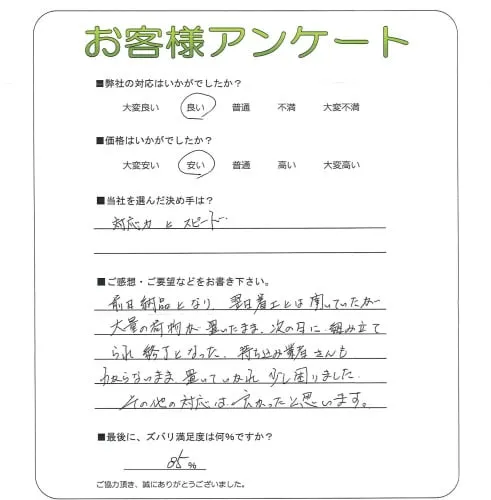 お客様アンケート
■弊社の対応はいかがでしたか?
大変良い 良い 普通 不満 大変不満
■価格はいかがでしたか?
大変安い 安い 普通 高い 大変高い
■当社を選んだ決め手は?
対応力とスピード
■ご感想・ご要望などをお書き下さい。
前日納品となり、翌日着工とは聞いていたが
大量の荷物が置いたまま、次の日に組み立て
られ終了となった。持ち込み業者さんも
わからないまま置いていかれ少し困りました。
その他の対応は良かったと思います。
■最後に、ズバリ満足度は何%ですか?
85%
ご協力頂き、誠にありがとうございました。